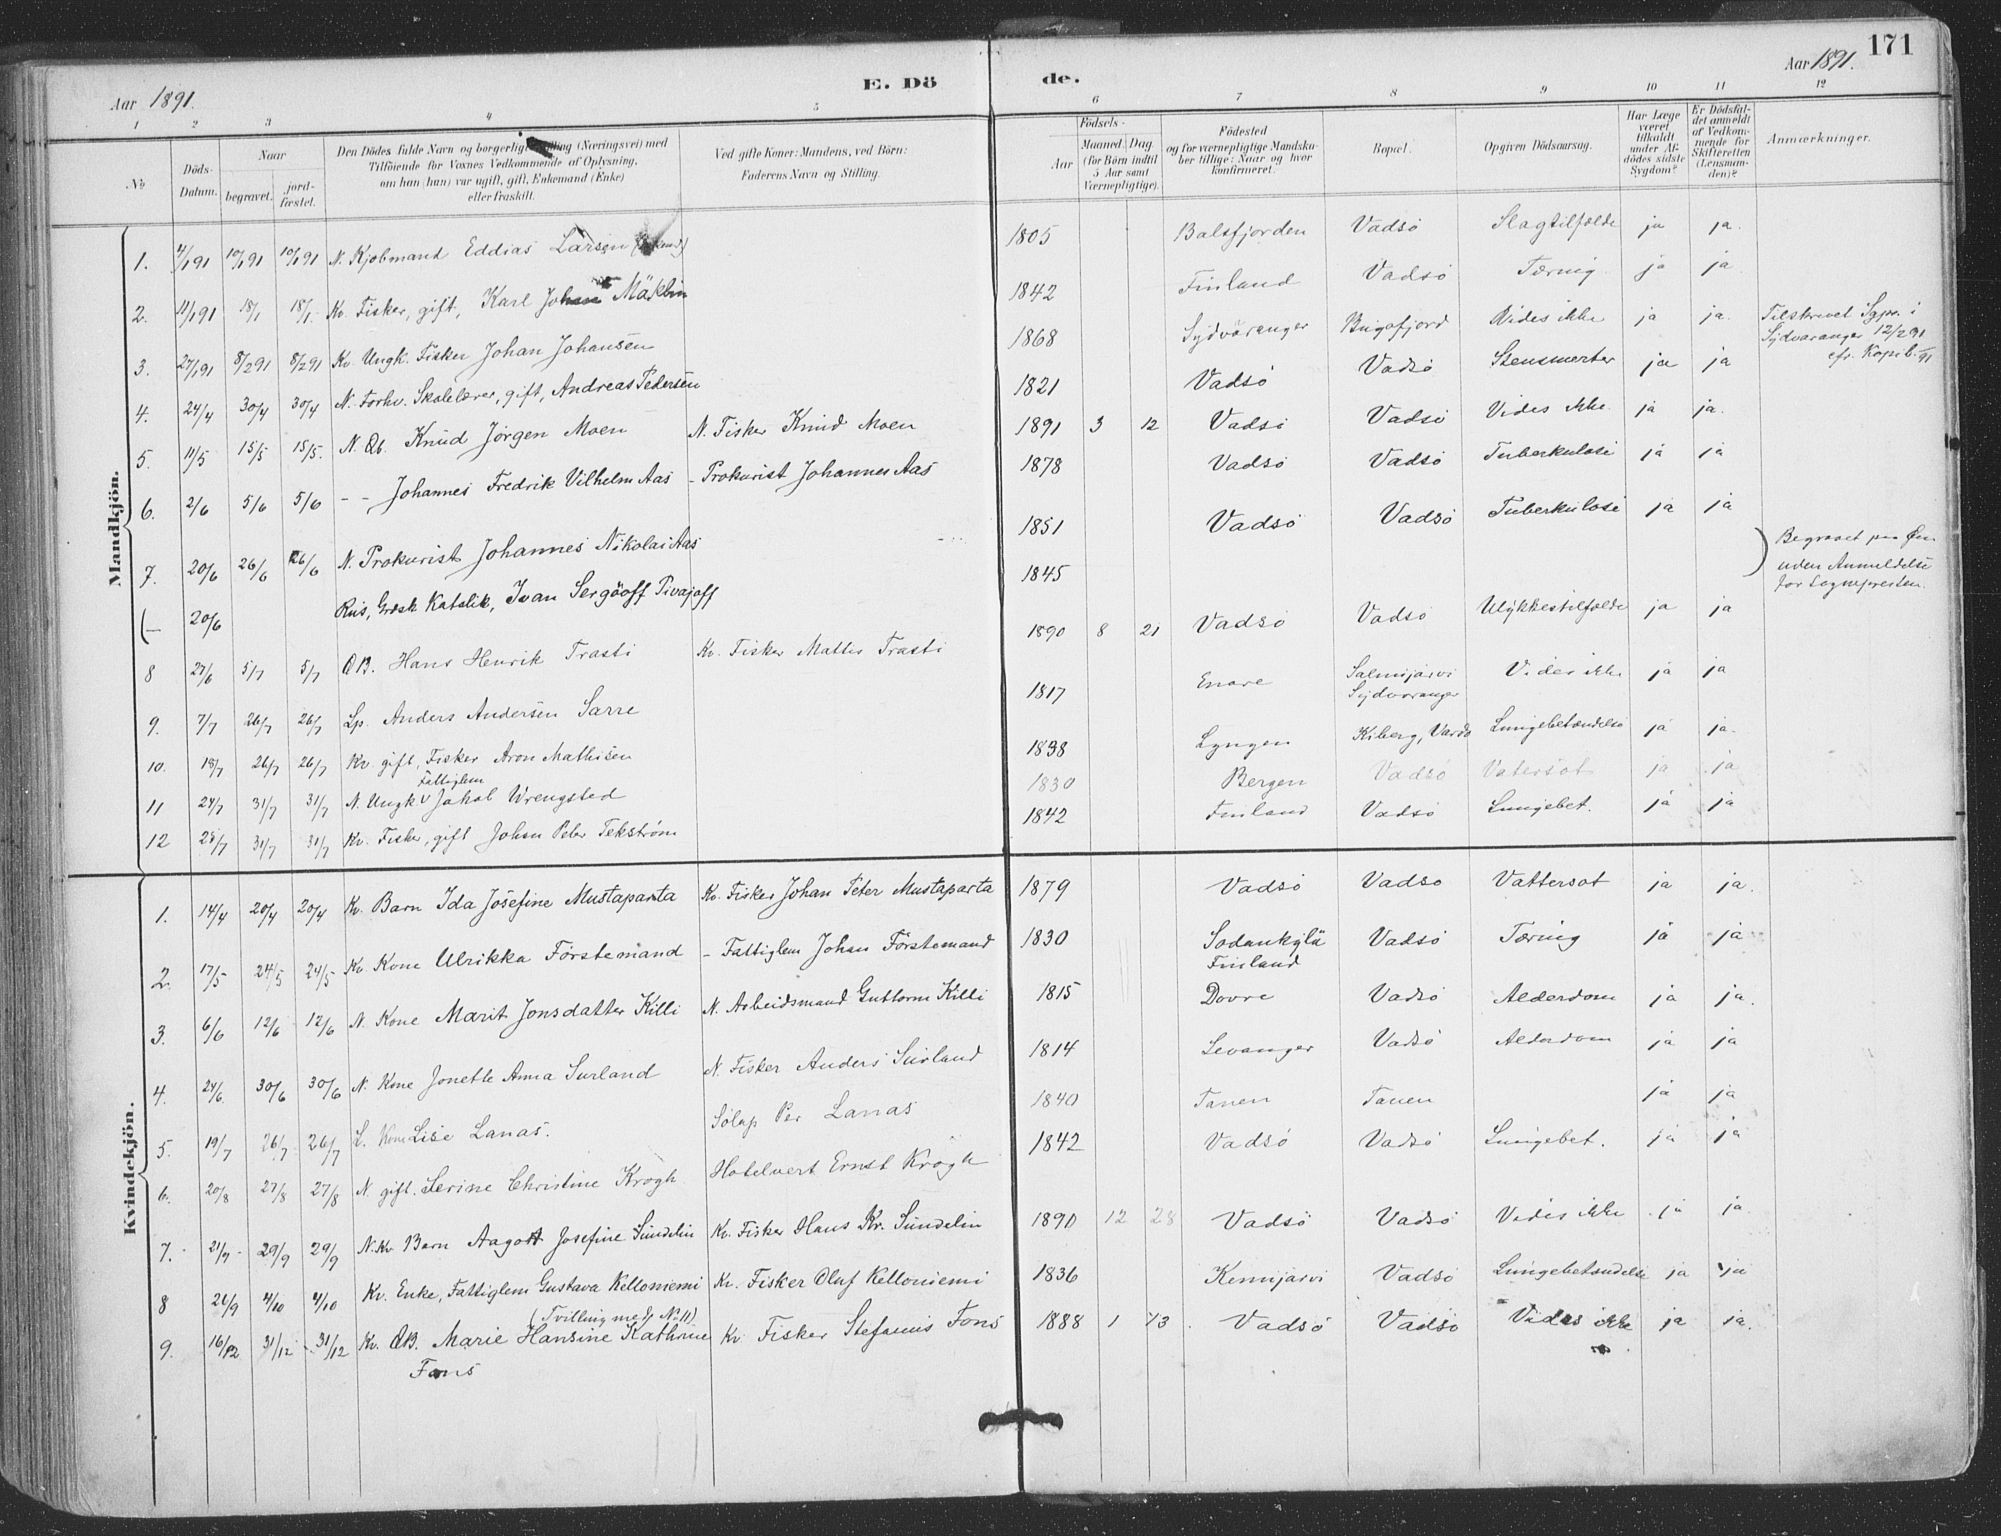 171
Aar 1891.
E. Dö
de.
Aar 1891.
1 2 3 4 5 6 7 8 9 10 11 12
No
Döds-Datum.
Naar
begravet.
jord-fæstet.
Den Dödes fulde Navn og borgerlig Stilling (Næringsvei) med
Tilföiende for Voxnes Vedkommende af Oplysning,
om han (hun) var ugift, gift, Enkemand (Enke)
eller fraskilt.
Ved gifte Koner: Mandens, ved Börn:
Faderens Navn og Stilling.
Födsels-
Aar
Maaned. Dag
(for Börn indtil
5 Aar samt
Værnepligtige).
Födested
og for værnepligtige Mandska-
ber tillige: Naar og hvor
konfirmeret.
Bopæl.
Opgiven Dödsaarsag.
Har Læge
været
tilkaldt
under Af-
dödes sidste
Sygdom?
Er Dödsfal-
det anmeldt
af Vedkom-
mende for
Skifteretten
(Lensman-
den)?
Anmærkninger.
Mandkjön.
1. 4/1 91 10/1 91 10/1 91 N. Kjøbmand Eddias Larsen 1805 Balsfjorden Vadsö Slagtilfælde ja ja.
2. 11/1 91 18/1 18/1 Kv. Fisker, gift, Karl Johan Mäkkin 1842 Finland Vadsö Tæring ja ja
3. 27/1 91 8/2 91 8/2 91 Kv. Ungk. Fisker Johan Johansen 1868 Sydvaranger Bugøfjord Vides ikke ja ja. Tilskrevet Sgpr. i
Sydvaranger 12/2 91
cfr. Kopib. 91
4. 24/4 30/4 30/4 N. Forhv. Skolelærer, gift, Andreas Pedersen 1821 Vadsö Vadsö Stensmerter ja ja
5. 11/5 15/5 15/5. N. Qb. Knud Jörgen Moen N. Fisker Knud Moen 1891 3 12 Vadsö Vadsö Vides ikke ja ja.
6. 2/6 5/6 5/6 - - Johannes Fredrik Vilhelm Aas - Prokurist Johannes Aas 1878 Vadsö Vadsö Tuberkulosi ja ja
7. 20/6 26/6 26/6 N. Prokurist Johannes Nikolai Aas 1851 Vadsö Vadsö Tuberkulose ja ja
(— 20/6 Rus, Græsk Katolik, Ivan Sergöoff Pivajoff 1845 ) Begravet paa Øen
uden Anmeldelse
for Sognepresten.
8 27/6 5/7 5/7 QB. Hans Henrik Trasti Kv. Fisker Mattis Trasti 1890 8 21 Vadsö Vadsö Ulykkestilfælde ja ja
9. 7/7 26/7 26/7 Lp. Anders Andersen Sarre 1817 Enare Salmijärvi
Sydvaranger Vides ikke ja ja
10. 18/7 26/7 26/7 Kv. gift, Fisker Aron Mathisen 1838 Lyngen Kiberg, Vardö Lungebetændelse ja ja.
Fattiglem
11 24/7 31/7 31/7 N. Ungk. Jakob Wrengsted 1830 Bergen Vadsö Vatersot ja ja
12 28/7 31/7 31/7 Kv. Fisker, gift Johan Peter Tekström 1842 Finland Vadsö Lungebet. ja ja
Kvindekjön.
1. 14/4 20/4 20/4 Kv. Barn Ida Josefine Mustaparta Kv. Fisker Johan Peter Mustaparta 1879 Vadsö Vadsö Vattersot ja ja.
2. 17/5 24/5 24/5 Kv Kone Ulrikka Förstemand - Fattiglem Johan Förstemand 1830 Sodankylä
Finland Vadsö Tæring ja ja
3. 6/6 12/6 12/6 N. Kone Marit Jonsdatter Killi N. Arbeidsmand Guttorm Killi 1815 Dovre Vadsö Alderdom ja ja.
4. 24/6. 30/6 30/6 N. Kone Jonette Anna Surland N. Fisker Anders Surland 1814 Levanger Vadsö Alderdom ja ja
5. 19/7 26/7 26/7 L. Kone Lise Lanas. Sölap Per Lanas 1840 Tanen Tanen ja ja
6. 20/8 27/8 27/8 N. gift. Serine Christine Krogh Hotelvert Ernst Krogh 1842 Vadsö Vadsö Lungebet. ja ja
7. 21/9 29/9 29/9 N. Kv Barn Aagot Josefine Sundelin Kv. Fisker Hans Kr. Sundelin 1890 12 28 Vadsö Vadsö Vides ikke ja ja
8 26/9 4/10 4/10 Kv. Enke, Fattiglem Gustava Kelloniemi Kv. Fisker Oluf Kelloniemi 1836 Kemijärvi Vadsö Lungebetændelse ja ja
(Tvilling med No 11)
9. 16/12 31/12 31/12 Kv. QB. Marie Hansine Kathrine
Fans Kv Fisker Stefanus Fons 1888 1 13 Vadsö Vadsö Vides ikke ja ja.